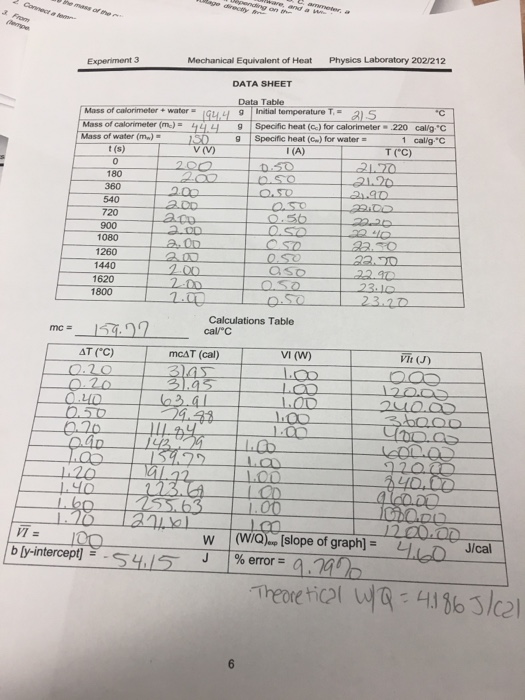 2. Connect a
3. From
the mass of the
depending on
and a
ammeter, a
directly
Experiment 3 Mechanical Equivalent of Heat Physics Laboratory 202/212
DATA SHEET
Data Table
Mass of calorimeter + water = 194.4 g Initial temperature Tᵢ = 21.5 °C
Mass of calorimeter (m꜀) = 44.4 g Specific heat (c꜀) for calorimeter = .220 cal/g·°C
Mass of water (mw) = 150 g Specific heat (cw) for water = 1 cal/g·°C
t (s) V (V) I (A) T (°C)
0 2.00 0.50 21.70
180 2.00 0.50 21.70
360 2.00 0.50 21.90
540 2.00 0.50 22.00
720 2.00 0.50 22.20
900 2.00 0.50 22.40
1080 2.00 0.50 22.50
1260 2.00 0.50 22.70
1440 2.00 0.50 22.90
1620 2.00 0.50 23.10
1800 2.00 0.50 23.20
Calculations Table
mc = 159.77 cal/°C
ΔT (°C) mcΔT (cal) VI (W) VIt (J)
0.20 31.95 1.00 0.00
0.20 31.95 1.00 120.00
0.40 63.91 1.00 240.00
0.50 79.88 1.00 360.00
0.70 111.84 1.00
0.90 143.79 1.00 600.00
1.00 159.77 1.00 720.00
1.20 191.72 1.00 840.00
1.40 223.69 1.00 960.00
1.60 255.63 1.00 1080.00
1.70 271.61 1.00 1200.00
VI = 1.00 W (W/Q)exp [slope of graph] = 4.60 J/cal
b [y-intercept] = -54.15 J % error = 9.79%
Theoretical W/Q = 4.186 J/cal
6